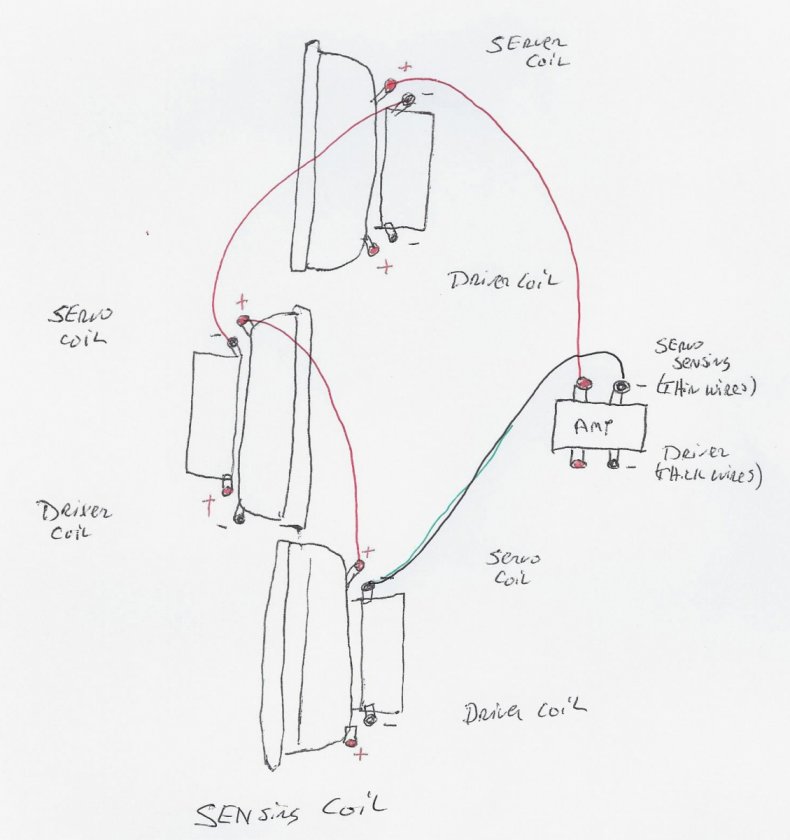 SERVER
COIL
+
-
-
+
DRIVER COIL
SERVO
COIL
+
-
SERVO
SENSING
(THIN WIRES)
-
AMP
DRIVER
(THICK WIRES)
-
+
-
DRIVER
COIL
+
SERVO
COIL
-
DRIVER COIL
-
+
SENSING COIL